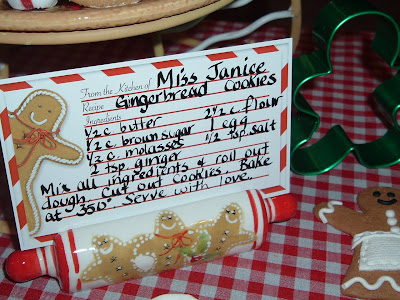 From the Kitchen of Miss Janice
Recipe Gingerbread Cookies
Ingredients
1/2 c. butter 2 1/2 c. flour
1/2 c. brown sugar 1 egg
1/2 c. molasses 1/2 tsp. salt
2 tsp. ginger
Mix all ingredients & roll out
dough. Cut out cookies. Bake
at 350° Serve with love.